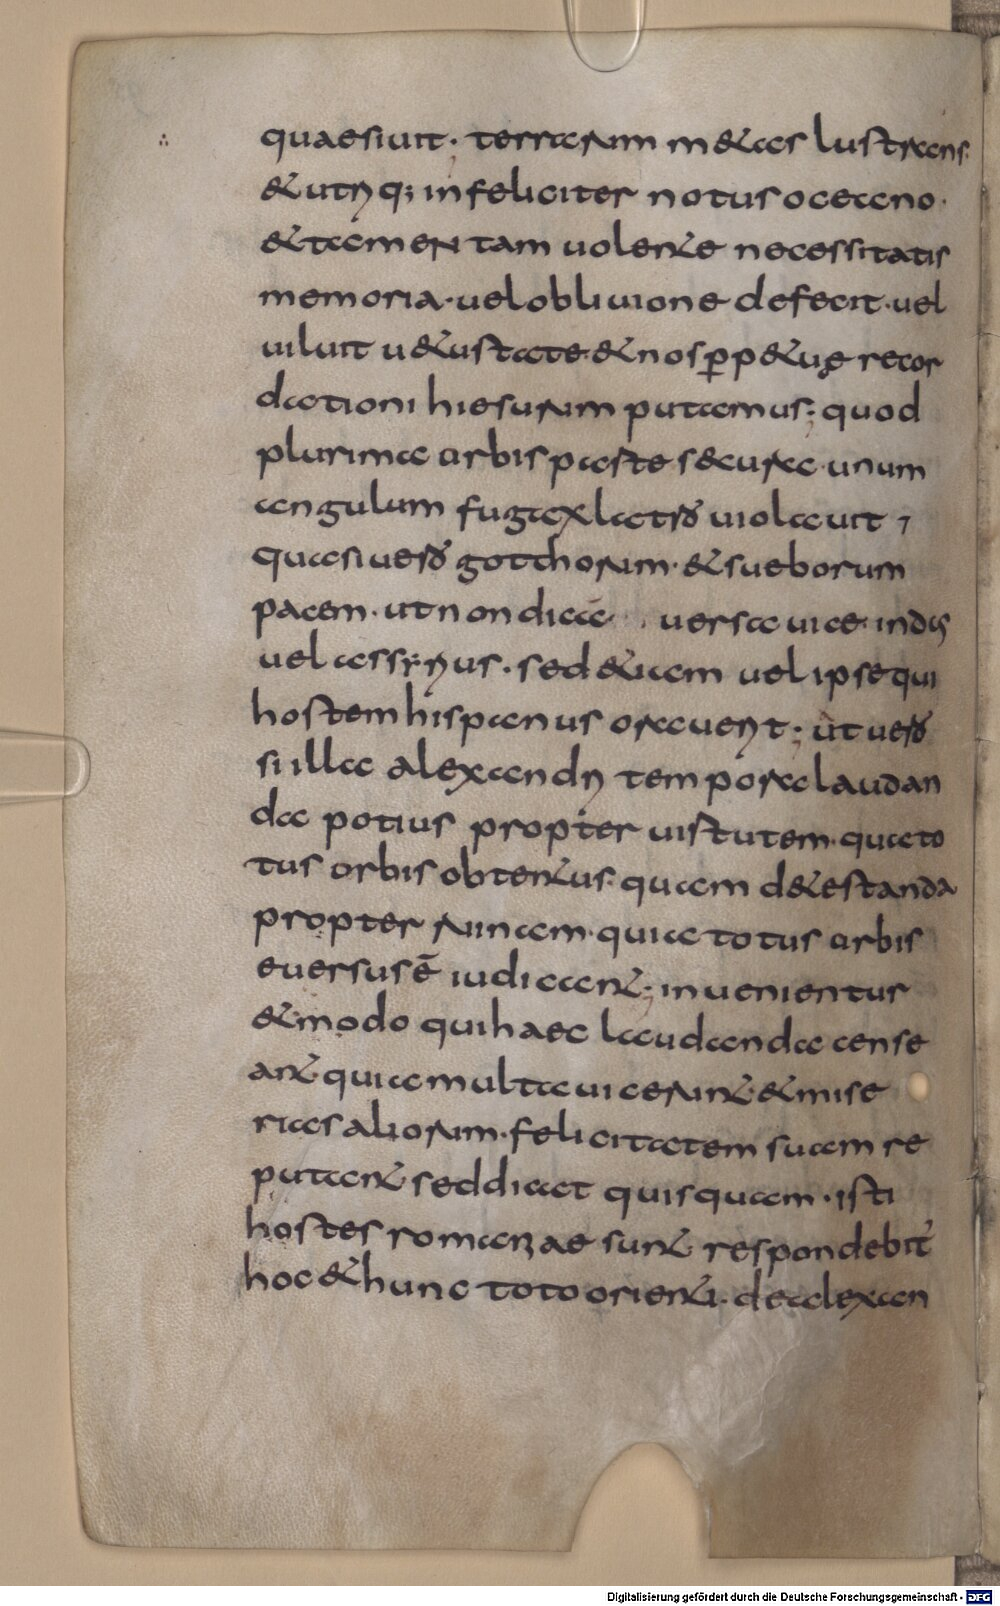 quaesiuit· terrarum m&as lustrans·
& utriq; infeliciter notus oceano·
&tamen tam uolente necessitatis
memoria· uel obliuione defecit· uel
uiluit u&ustate· & nos perp&uę recor
dationi hiesurum putamus; quod
plurima orbis parte s&cura· unum
angulum fugax latro uiolauit ,
quaesiuero gotthorum· & sueborum
pacem· ut non dicā uersa uice· indis
uel assyriis· sed &iam uel ipse qui
hostem hispanus orauerit; ut uero
si illa alexandri tempora laudan
da potius propter uirtutem· qua to
tus orbis obtentus· quam d&estanda
propter ruinam· quia totus orbis
euersus ē iudicant; inuenientur
& modo qui haec laudanda cense
ant· quia multa uicerunt· & mise
rias aliorum· felicitatem suam re
putant sed dicat quisquam· isti
hostes romaniae sunt respondebit'
hoc & hunc toto orienti· de alexan
Digitalisierung gefördert durch die Deutsche Forschungsgemeinschaft - DFG